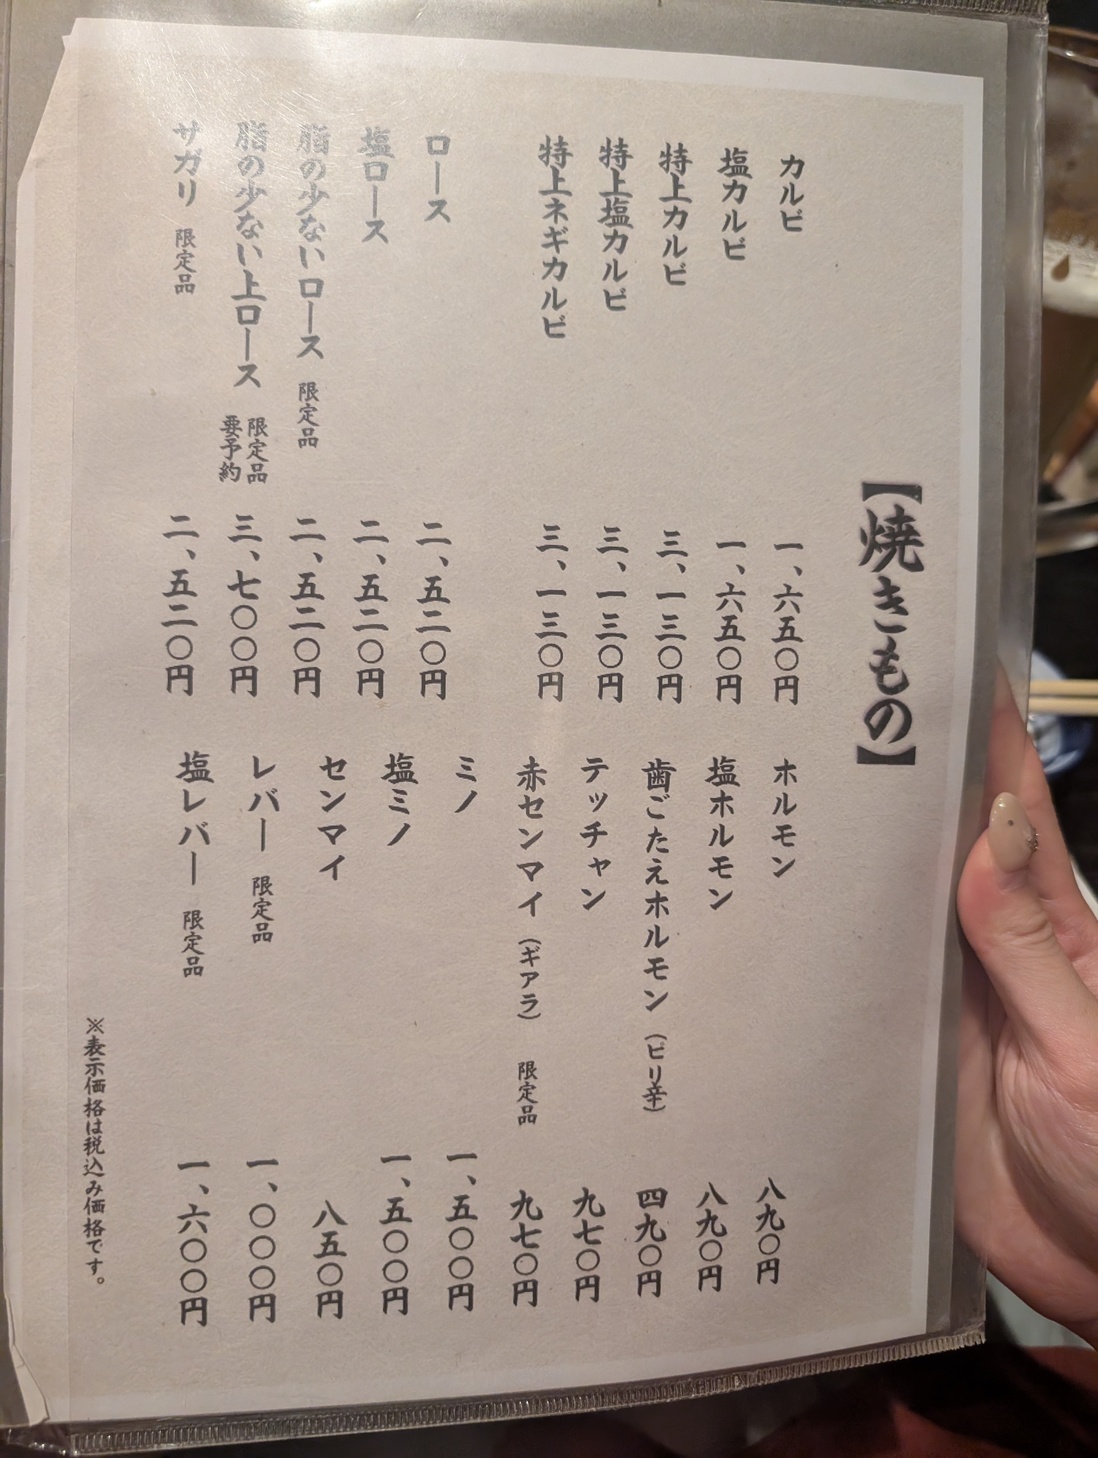 【焼きもの】
カルビ 一、六五〇円
塩カルビ 一、六五〇円
特上カルビ 三、一三〇円
特上塩カルビ 三、一三〇円
特上ネギカルビ 三、一三〇円
ロース 二、五二〇円
塩ロース 二、五二〇円
脂の少ないロース 限定品 二、五二〇円
脂の少ない上ロース 限定品 要予約 三、七〇〇円
サガリ 限定品 二、五二〇円
ホルモン 八九〇円
塩ホルモン 八九〇円
歯ごたえホルモン（ピリ辛） 四九〇円
テッチャン 九七〇円
赤センマイ（ギアラ） 限定品 九七〇円
ミノ 一、五〇〇円
塩ミノ 一、五〇〇円
センマイ 八五〇円
レバー 限定品 一、〇〇〇円
塩レバー 限定品 一、六〇〇円
※表示価格は税込み価格です。